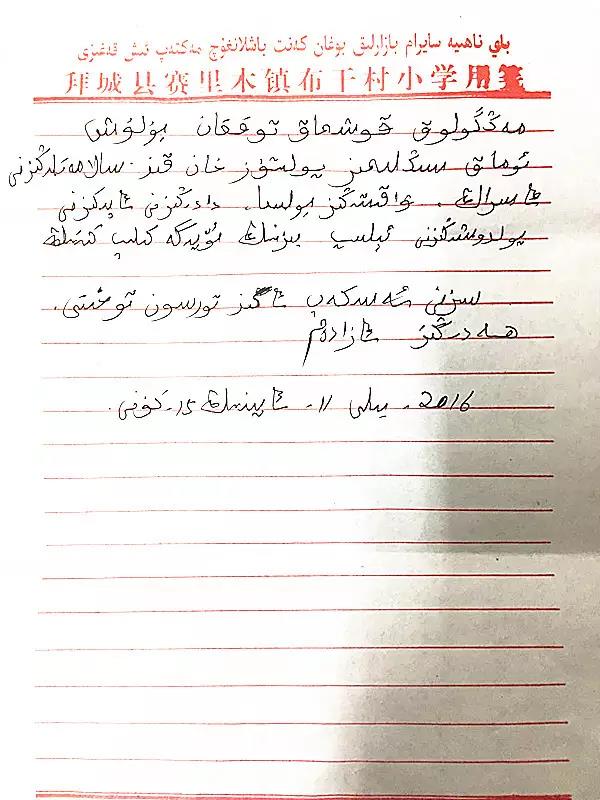 باي ناھىيە سايرام بازارلىق بوغان كەنت باشلانغۇچ مەكتەپ ئىش قەغىزى
拜城县赛里木镇布干村小学用笺
مەڭگۈلۈق قوشماق توققان بولۇش
ئوماق سىڭلىمىز يولتۇز خان قىز. سالامەتلىڭىزنى
بولسا. دادىڭىزنى ئاپىڭىزنى
يولدىشىڭىزنى ئېلىپ بىزنىڭ ئۆيگە كېلىپ كېتىڭ
سىزنى ئەسكەپ ئاكىڭىز تۇرسۇن توختى.
ھەدىڭىز ئازادەم
2016 - يىلى 11 - ئاينىڭ 15 - كۈنى.